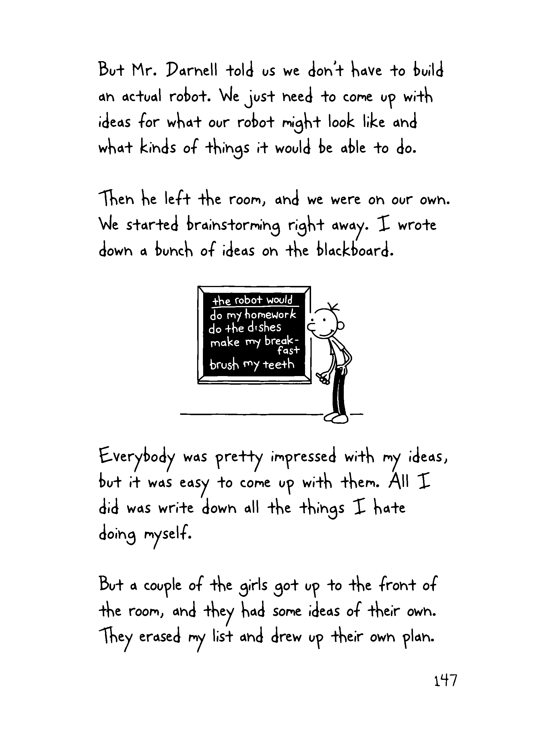 But Mr. Darnell told us we don't have to build
an actual robot. We just need to come up with
ideas for what our robot might look like and
what kinds of things it would be able to do.
Then he left the room, and we were on our own.
We started brainstorming right away. I wrote
down a bunch of ideas on the blackboard.
the robot would
do my homework
do the dishes
make my break-
fast
brush my teeth
Everybody was pretty impressed with my ideas,
but it was easy to come up with them. All I
did was write down all the things I hate
doing myself.
But a couple of the girls got up to the front of
the room, and they had some ideas of their own.
They erased my list and drew up their own plan.
147